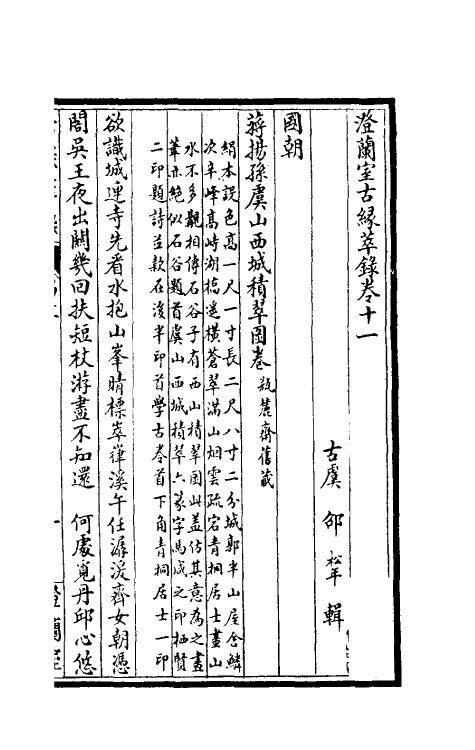 澄蘭室古緣萃錄卷十一
古虞 邵 松年 輯
國朝
蔣揚孫虞山西城積翠圖卷 瓶廬齋舊藏
絹本設色高一尺一寸長二尺八寸二分城郭半山屋舍鱗
次辛峰高峙湖橋遥橫蒼翠滿山烟雲疏宕青桐居士畫山
水不多觀相傳石谷子有西山積翠圖此盖仿其意為之畫
葦亦絕似石谷題首虞山西城積翠六篆字馮咸之印栖賢
二印題詩並款在後半印首學古卷首下角青桐居士一印
欲識城連寺先看水抱山峯晴標崒嵂溪午任潺湲齊女朝憑
閣吳王夜出關幾回扶短杖游盡不知還 何處覓丹邱心悠
一
澄蘭室